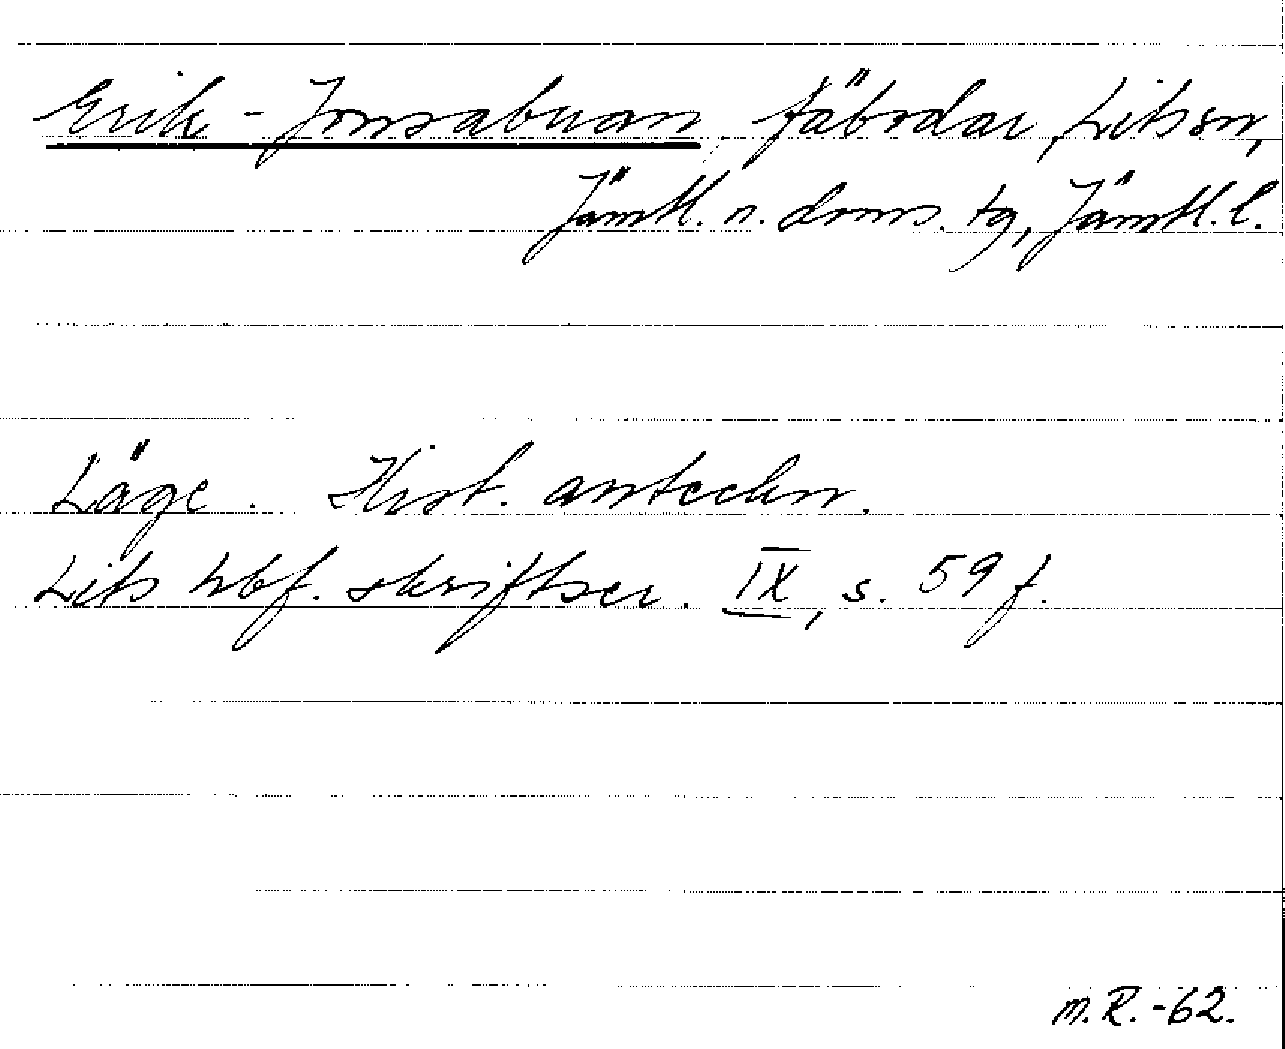 Erik-Jonsabuan, fäbodar, Lits sn,
Jämtl. n. doms. tg, Jämtl. l.
Läge. Hist. anteckn.
Lits hbf. skriftser. IX, s. 59 f.
M.R. -62.